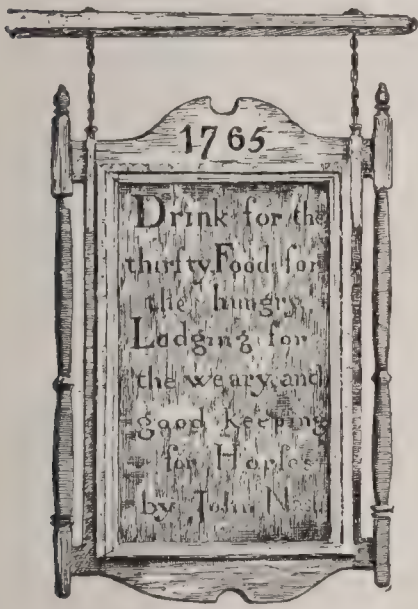 1765
Drink for the
thirsty Food for
the hungry
Lodging for
the weary, and
good keeping
for Horses
by John